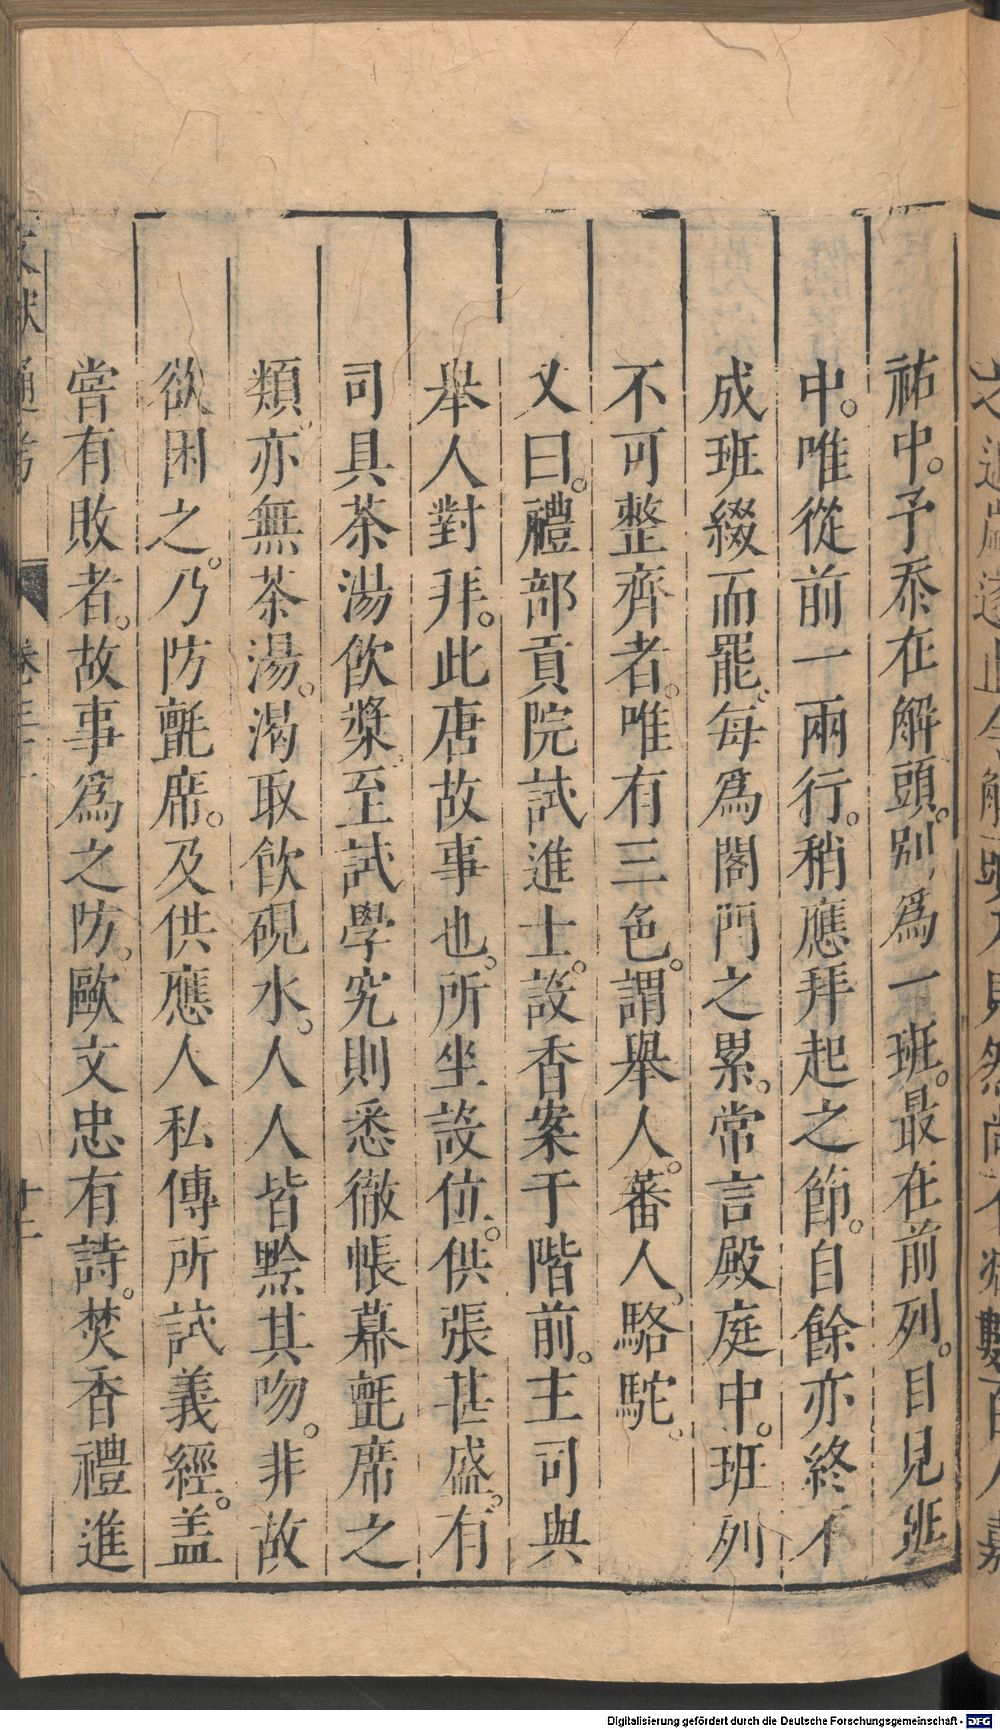 祐中。予忝在解頭。別爲一班。最在前列。目見班
中。唯從前一兩行。稍應拜起之節。自餘亦終不
成班綴而罷。每爲閤門之累。常言殿庭中。班列
不可整齊者。唯有三色。謂舉人。蕃人。駱駝。
又曰。禮部貢院試進士。設香案于階前。主司與
舉人對拜。此唐故事也。所坐設位。供張甚盛。有
司具茶湯飲漿。至試學究則悉徹帳幕氊席之
類。亦無茶湯。渴取飲硯水。人人皆黔其吻。非故
欲困之。乃防氊席。及供應人私傳所試義經。盖
嘗有敗者。故事爲之防。歐文忠有詩。焚香禮進
文獻通考 卷三十 十二
Digitalisierung gefördert durch die Deutsche Forschungsgemeinschaft - DFG